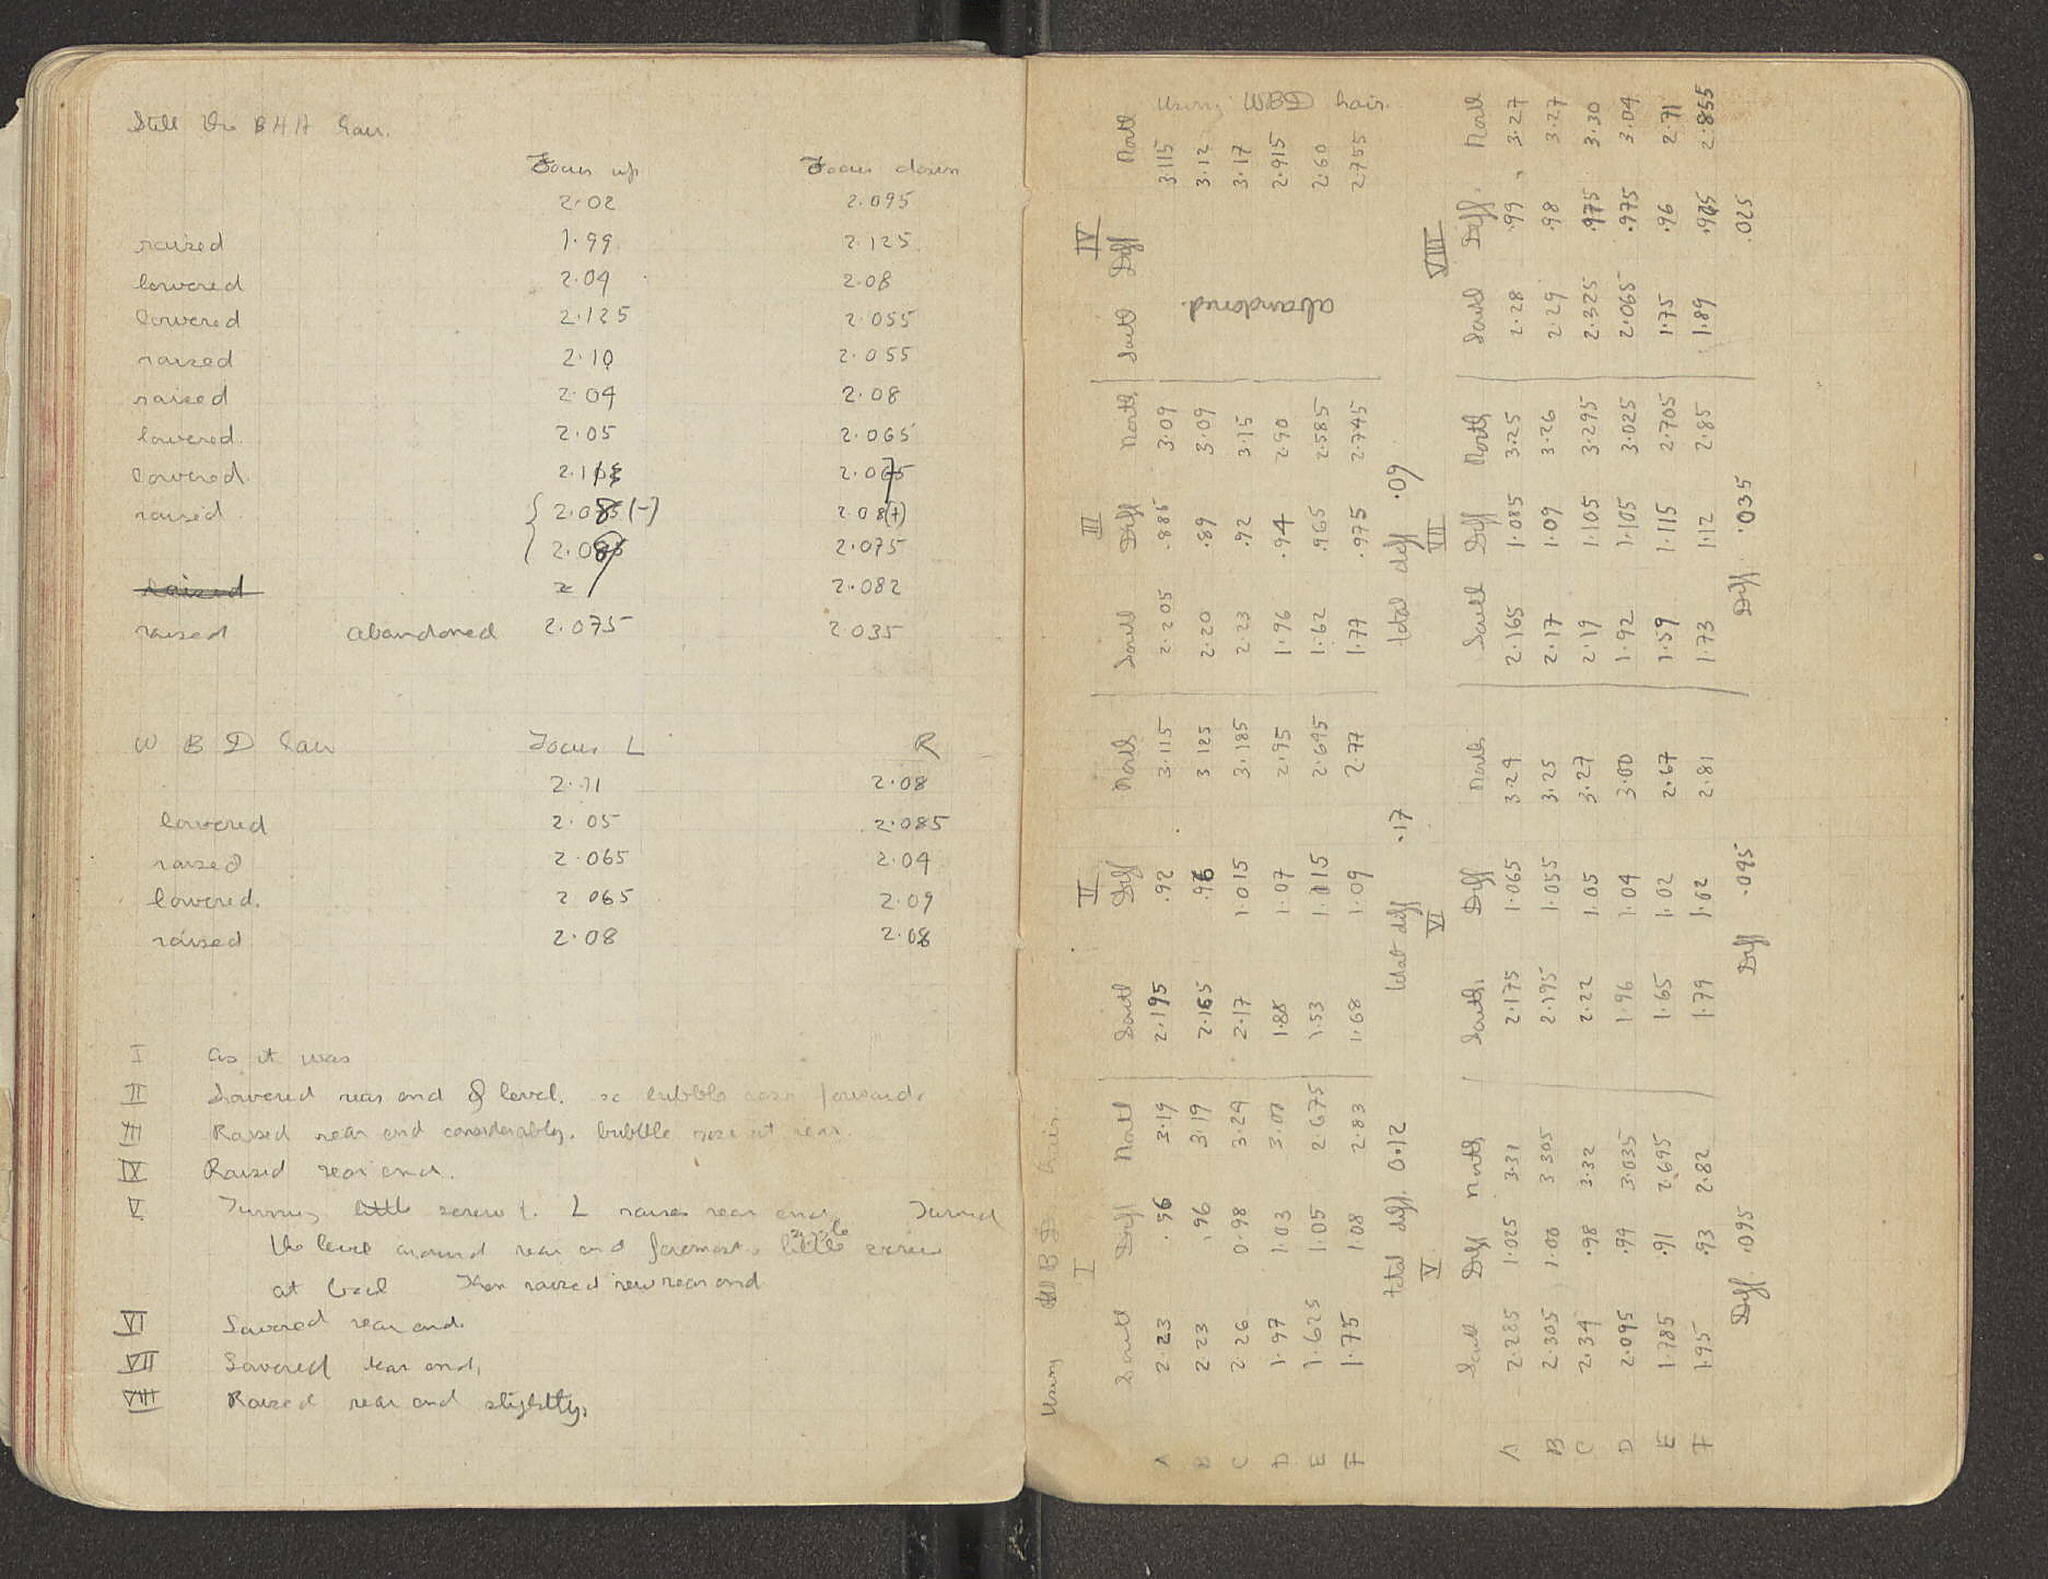 Still the B H A hair.
Focus up Focus down
2.02 2.095
raised 1.99 2.125
lowered 2.04 2.08
lowered 2.125 2.055
raised 2.10 2.055
raised 2.04 2.08
lowered. 2.05 2.065
lowered. 2.0
raised (-) 2.08(+)
2.075
raised 2.082
raised abandoned 2.075 2.035
W B D hair Focus L R
2.11 2.08
lowered 2.05 2.085
raised 2.065 2.04
lowered. 2.065 2.09
raised 2.08 2.08
I As it was
II Lowered rear end of level. so bubble forwards
III Raised rear end considerably. bubble at rear.
IV Raised rear end.
V Turning little screw L raises rear end. Turned
the level around rear end foremost little screw
at back Then raised new rear end
VI Lowered rear end.
VII Lowered rear end.
VIII Raised rear end slightly.
Using W B D hair.
I
South Diff North
A 2.23 .96 3.19
B 2.23 .96 3.19
C 2.26 0.98 3.24
D 1.97 1.03 3.00
E 1.625 1.05 2.675
F 1.75 1.08 2.83
total diff. 0.12
II
South Diff North
2.195 .92 3.115
2.165 .96 3.125
2.17 1.015 3.185
1.88 1.07 2.95
1.53 1.115 2.645
1.68 1.09 2.77
total diff .17
III
South Diff North
2.205 .885 3.09
2.20 .89 3.09
2.23 .92 3.15
1.96 .94 2.90
1.62 .965 2.585
1.77 .975 2.745
total diff .09
using WBD hair.
IV
South Diff North
3.115
3.12
3.17
2.915
2.60
2.755
abandoned.
abandoned
V
South Diff North
A 2.285 1.025 3.31
B 2.305 1.00 3.305
C 2.34 .98 3.32
D 2.095 .94 3.035
E 1.785 .91 2.695
F 1.95 .93 2.82
Diff .095
VI
South. Diff North
2.175 1.065 3.24
2.195 1.055 3.25
2.22 1.05 3.27
1.96 1.04 3.00
1.65 1.02 2.67
1.79 1.02 2.81
Diff .095
VII
South Diff North
2.165 1.085 3.25
2.17 1.09 3.26
2.19 1.105 3.295
1.92 1.105 3.025
1.59 1.115 2.705
1.73 1.12 2.85
Diff .035
VIII
South Diff. North
2.28 .99 3.27
2.29 .98 3.27
2.325 .975 3.30
2.065 .975 3.04
1.75 .96 2.71
1.89 .965 2.855
.025